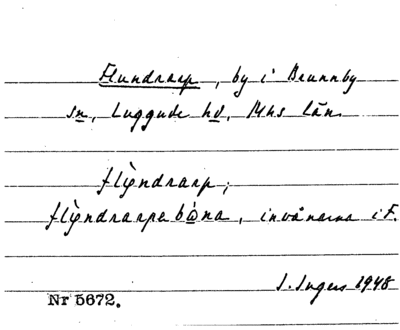 Flundrarp, by i Brunnby
sn, Luggude hd, Mhs län
flyndrarp;
flyndrarpabóna, invånarna i F.
I. Ingers 1948
Nr 5672.